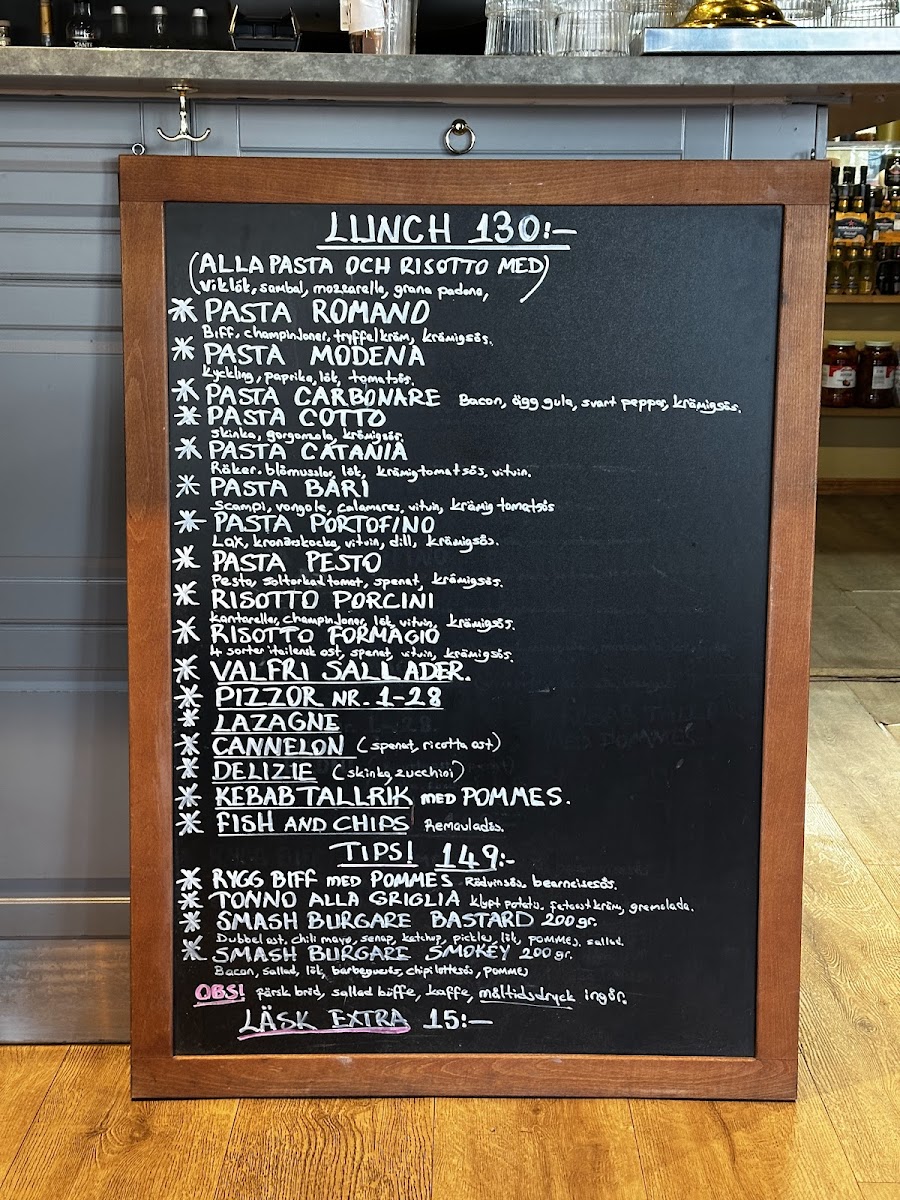 LUNCH 130:-
(ALLA PASTA OCH RISOTTO MED)
Vitlök, sambal, mozzarella, grana padano,
* PASTA ROMANO
Biff, champinjoner, tryffelkräm, krämigsös.
* PASTA MODENA
Kyckling, paprika, lök, tomatsös.
* PASTA CARBONARE Bacon, ägg gula, svart peppar, krämigsös.
* PASTA COTTO
Skinka, gorgonzola, krämigsös.
* PASTA CATANIA
Räker. blåmusslor, lök, krämigtomatsös, vitvin.
* PASTA BARI
Scampi, vongole, calamares, vitvin, krämig tomatsös
* PASTA PORTOFINO
Lax, kronärskocka, vitvin, dill, krämigsös.
* PASTA PESTO
Pesto, soltorkad tomat, spenat, krämigsös.
* RISOTTO PORCINI
kantareller, champinjoner, lök, vitvin, krämigsös.
* RISOTTO FORMAGIO
4 sorter itailensk ost, spenat, vitvin, krämigsös.
* VALFRI SALLADER.
* PIZZOR NR. 1-28
* LAZAGNE
* CANNELON (spenat, ricotta ost)
* DELIZIE (skinka, zucchini)
* KEBAB TALLRIK MED POMMES.
* FISH AND CHIPS Remouladös.
TIPS! 149:-
* RYGG BIFF MED POMMES Rödvinsös, bearneisesös.
* TONNO ALLA GRIGLIA klypt potatis, fetaost kräm, gremolada.
* SMASH BURGARE BASTARD 200 gr.
Dubbel ost, chili mayo, senap, ketchup, pickles, lök, pommes, sallad.
* SMASH BURGARE SMOKEY 200 gr.
Bacon, sallad, lök, barbequesös, chipi lottesös, pommes
OBS! färsk bröd, sallad büffe, kaffe, måltidsdryck ingår.
LÄSK EXTRA 15:-